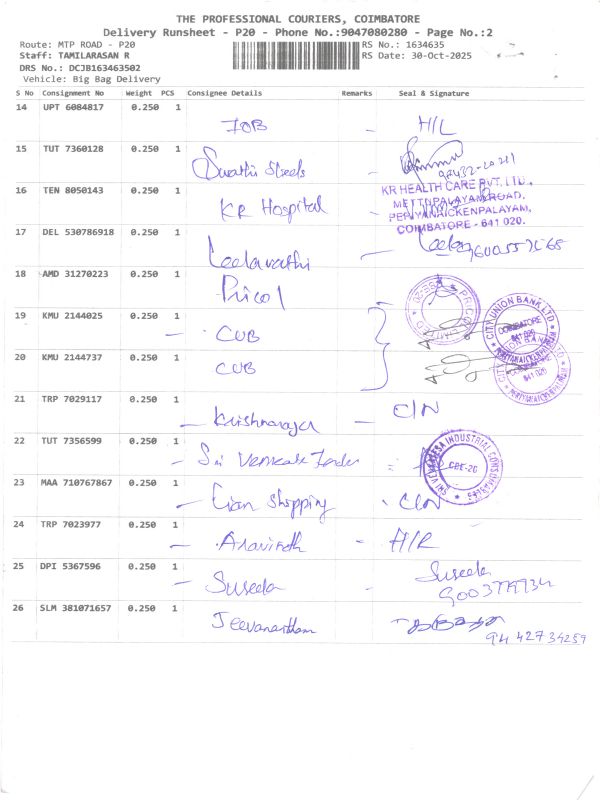 THE PROFESSIONAL COURIERS, COIMBATORE
Delivery Runsheet - P20 - Phone No.:9047080280 - Page No.:2
Route: MTP ROAD - P20 RS No.: 1634635
Staff: TAMILARASAN R RS Date: 30-Oct-2025
DRS No.: DCJB163463502
Vehicle: Big Bag Delivery
S No Consignment No Weight PCS Consignee Details Remarks Seal & Signature
14 UPT 6084817 0.250 1 IOB - H/L
15 TUT 7360128 0.250 1 Swathi Steels
16 TEN 8050143 0.250 1 KR Hospital
KR HEALTH CARE PVT. LTD.,
METTUPALAYAM ROAD,
PERIYANAICKENPALAYAM,
COIMBATORE - 641 020.
17 DEL 530786918 0.250 1 Leelavathi - Leela
18 AMD 31270223 0.250 1 Pricol
PRICOL LIMITED
19 KMU 2144025 0.250 1 - CUB
CITY UNION BANK LTD
COIMBATORE
641 020
PERIYANAICKENPALAYAM
20 KMU 2144737 0.250 1 CUB
641 020
21 TRP 7029117 0.250 1 - Krishnaraja - C/N
22 TUT 7356599 0.250 1 - Sri Venkatesa
CBE-20
23 MAA 710767867 0.250 1 - Lian Shopping - C/N
24 TRP 7023977 0.250 1 - Aravinth - H/R
25 DPI 5367596 0.250 1 - Suseela Suseela
26 SLM 381071657 0.250 1 Jeevanantham
94 42734259